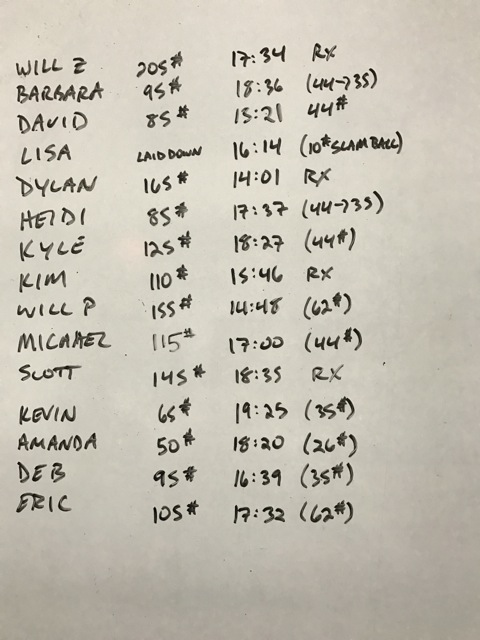 WILL Z 205# 17:34 RX
BARBARA 95# 18:36 (44→35)
DAVID 85# 15:21 44#
LISA LAID DOWN 16:14 (10# SLAM BALL)
DYLAN 165# 14:01 RX
HEIDI 85# 17:37 (44→35)
KYLE 125# 18:27 (44#)
KIM 110# 15:46 RX
WILL P 155# 14:48 (62#)
MICHAEL 115# 17:00 (44#)
SCOTT 145# 18:35 RX
KEVIN 65# 19:25 (35#)
AMANDA 50# 18:20 (26#)
DEB 95# 16:39 (35#)
ERIC 105# 17:32 (62#)